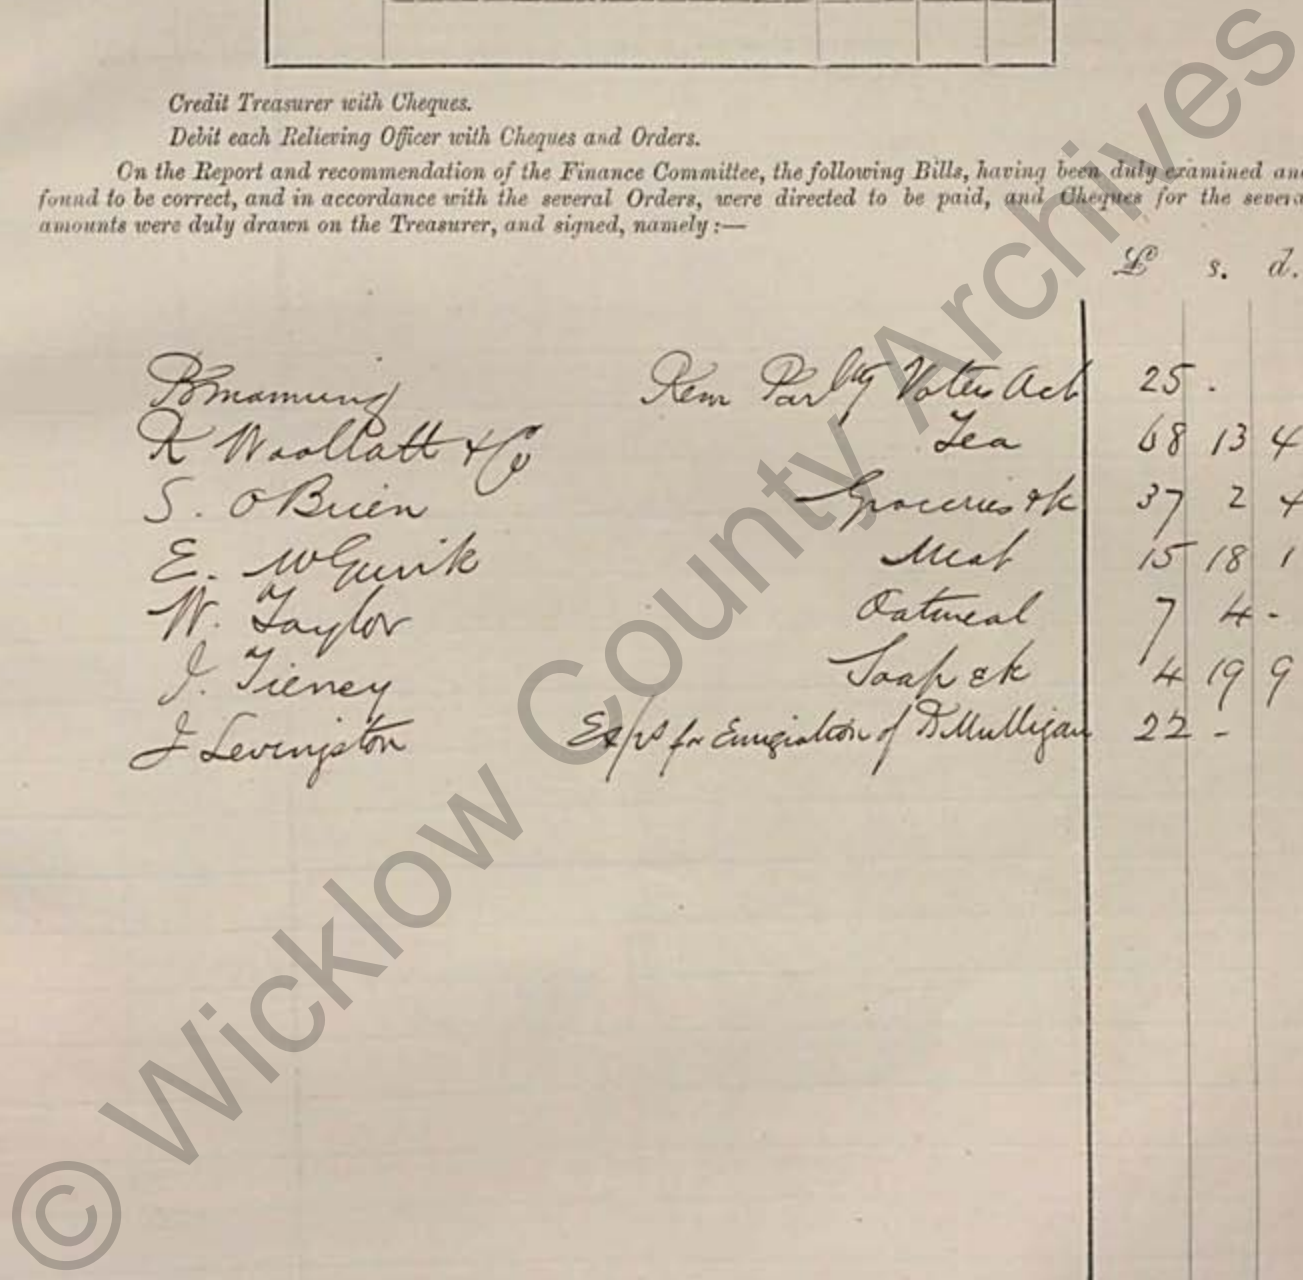 Credit Treasurer with Cheques.
Debit each Relieving Officer with Cheques and Orders.
On the Report and recommendation of the Finance Committee, the following Bills, having been duly examined an
found to be correct, and in accordance with the several Orders, were directed to be paid, and Cheques for the severa
amounts were duly drawn on the Treasurer, and signed, namely :—
£ s. d.
Rem Parlty Voters Act 25 .
R Woollatt & Co Tea 68 13 4
S. O'Brien Groceries &c 37 2 4
E. McGurik Meat 15 18 1
W. Taylor Oatmeal 7 4 -
J. Tierney Soap &c 4 19 9
J Levingston Exps for Emigration of D Mulligan 22 -
© Wicklow County Archives